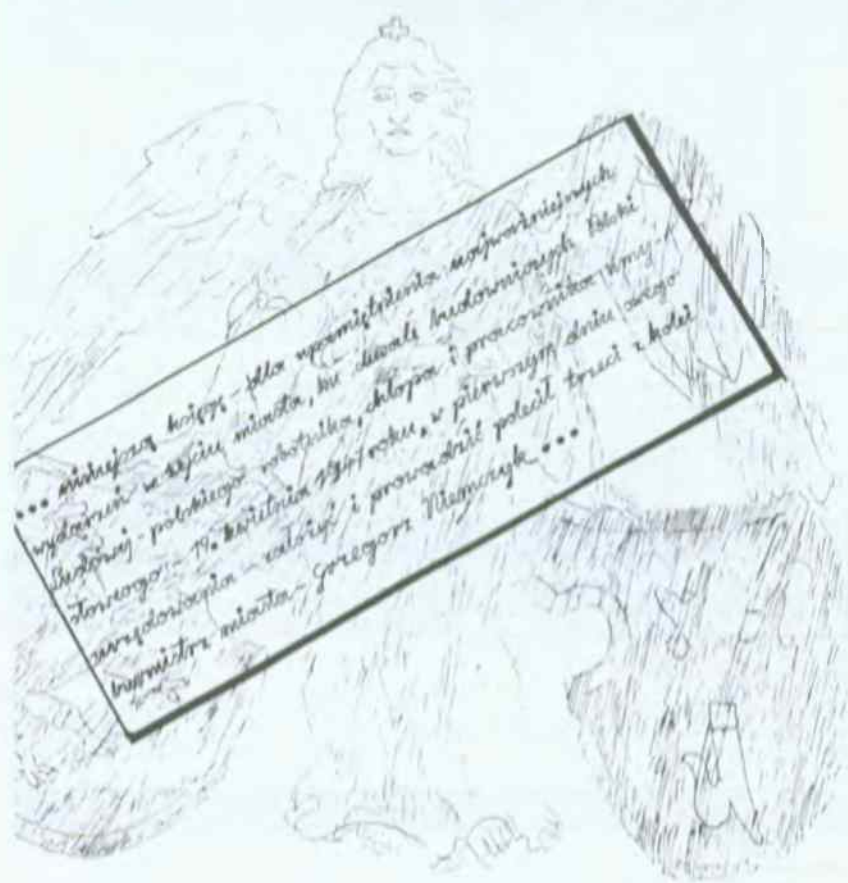 ... niniejszą księgę - dla upamiętnienia najważniejszych
wydarzeń w życiu miasta, ku chwale budowniczych Polski
Ludowej - polskiego robotnika, chłopa i pracownika umy-
słowego - 19. kwietnia 1947 roku, w pierwszym dniu swego
urzędowania - założyć i prowadzić polecił trzeci z kolei
burmistrz miasta - Grzegorz Niemczyk ...